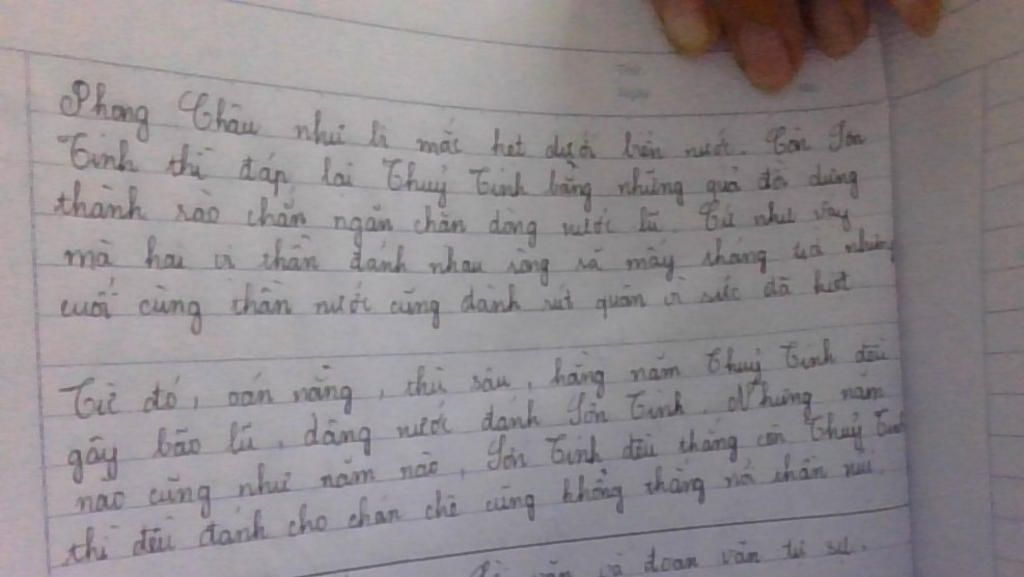 Phong Châu như bị mắc kẹt dưới biển nước. Còn Sơn
Tinh thì đáp lại Thuỷ Tinh bằng những quả đồi dựng
thành rào chắn ngăn chặn dòng nước lũ. Cứ như vậy
mà hai vị thần đánh nhau ròng rã mấy tháng trời nhưng
cuối cùng thần nước cũng đành rút quân vì sức đã kiệt
Từ đó, oán nặng, thù sâu, hằng năm Thuỷ Tinh đều
gây bão lũ, dâng nước đánh Sơn Tinh. Nhưng năm
nào cũng như năm nào, Sơn Tinh đều thắng còn Thuỷ Tinh
thì đều đánh cho chán chê cũng không thắng nổi thần núi.
văn và đoạn văn tự sự.